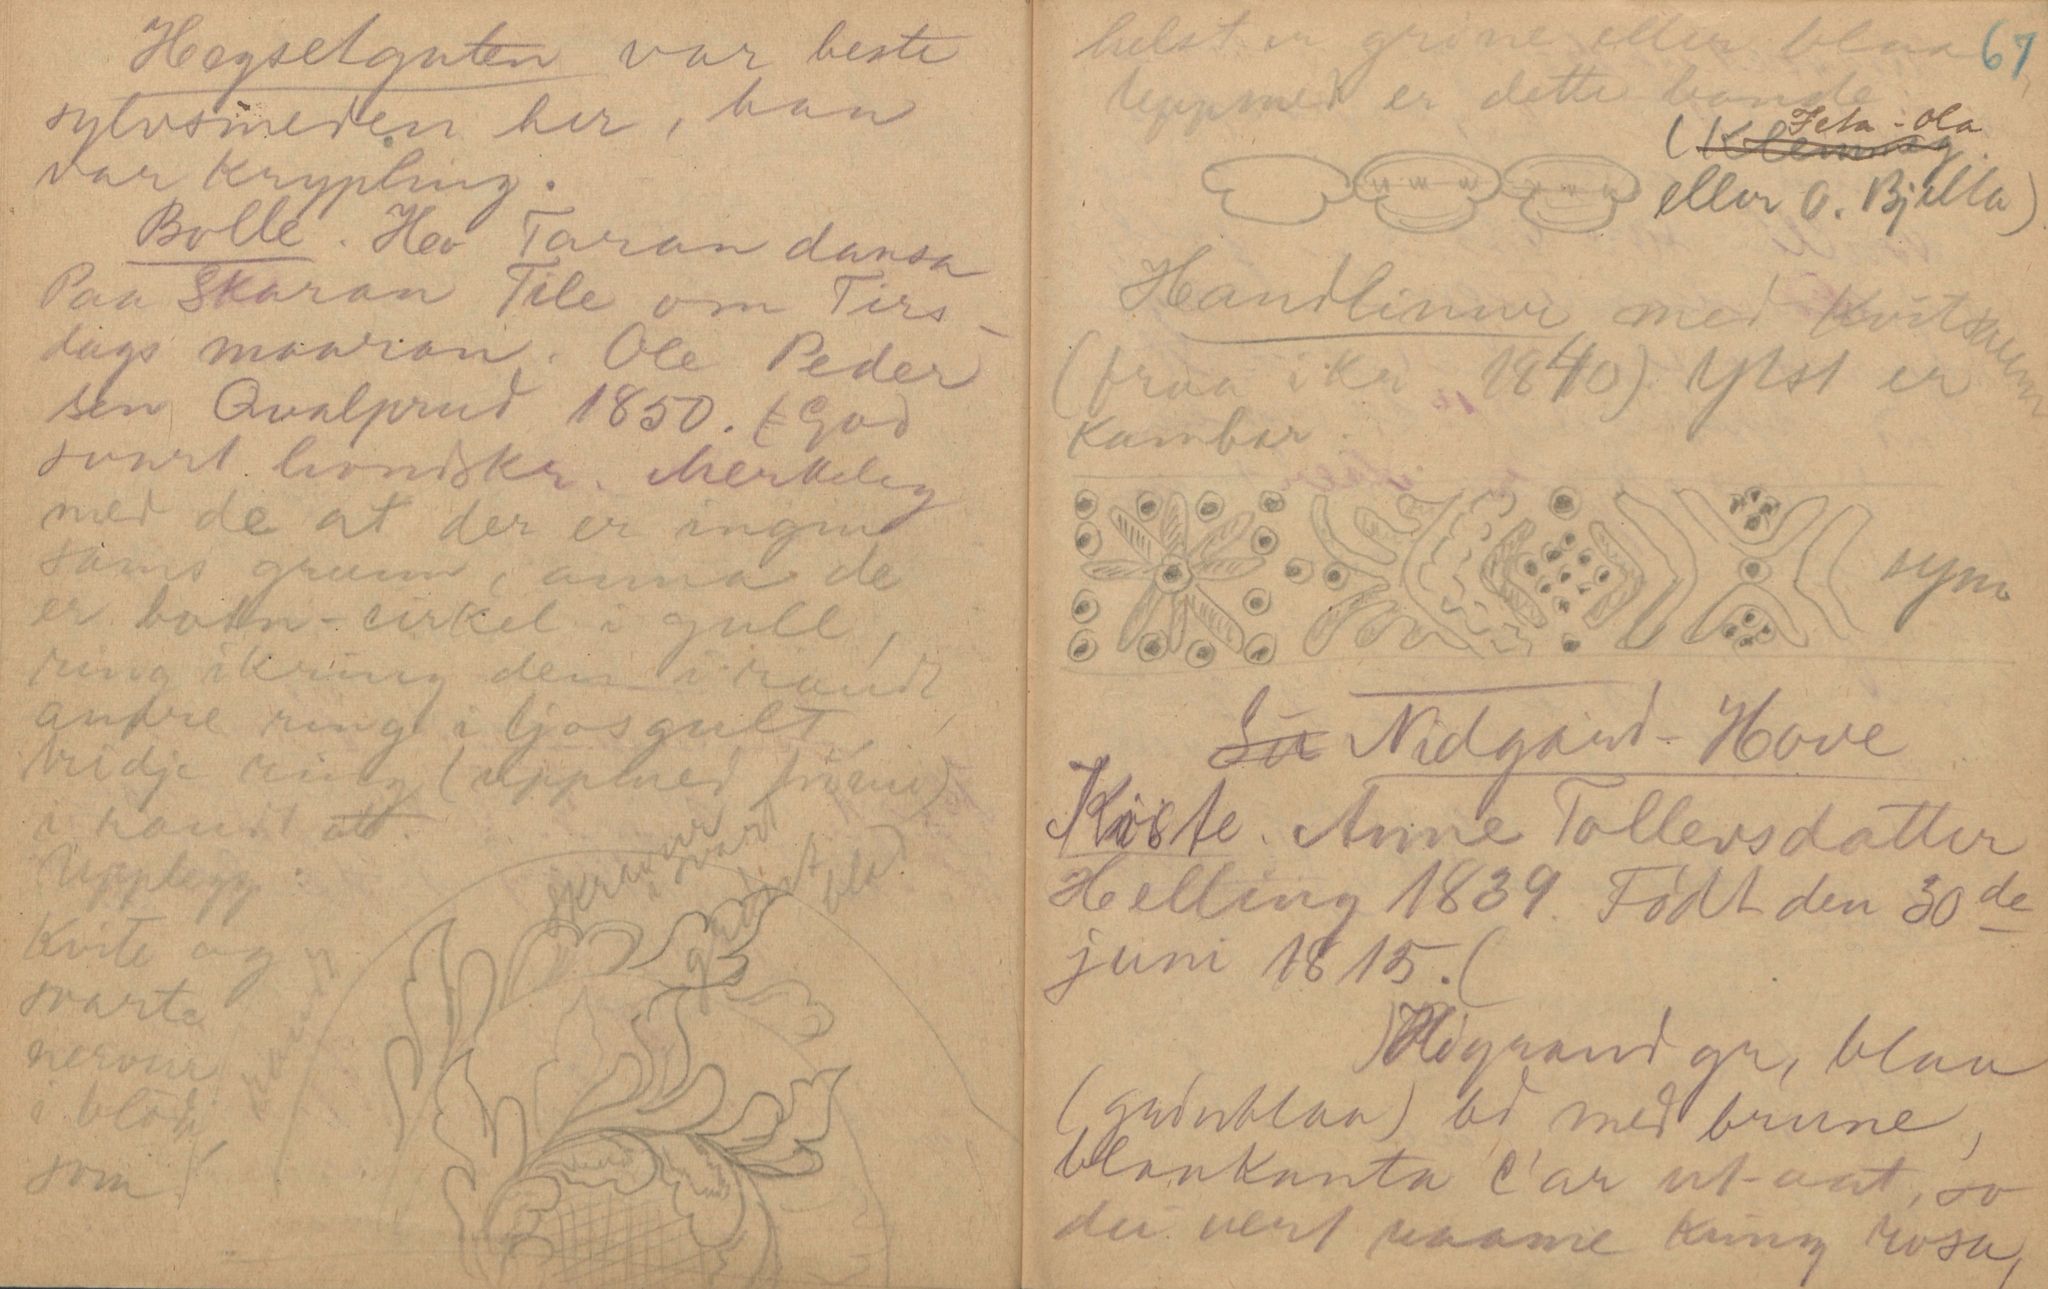 Hegsetguten var beste
sylvsmeden her, han
var Krypling.
Bolle. Hev Taran dansa
Paa Skaran Tile om Tirs-
dags maaran. Ole Peder
sen Qvalprud 1850. God
svart bondskr. Merkeleg
med de at der er ingen
sams grunn, anna de
er botn-cirkel i gull,
ring ikring den i raudt,
andre ring i ljosgult,
tridje ring (uppmed
i raudt att.
skravur
i svart
grønt
blad
Upplegg:
Kvite og
svarte
nervur
i blad
som
67
helst er grøne eller blaa
Uppmed er dette bande
(Klemmeg
Feta-Ola
eller O. Bjella)
Handlinur med Kvitsaum
(fraa ikr. 1840) Ytst er
Kambar.
sym.
Su Nidgard-Hove
Kiste. Anne Tollevsdatter
Helling 1839. Født den 30de
juni 1815. (
) Raudgr, blaa
(grønblaa) bd med brune,
blaakanta C'ar ut-aat, so
dei vert raame kring rosa,